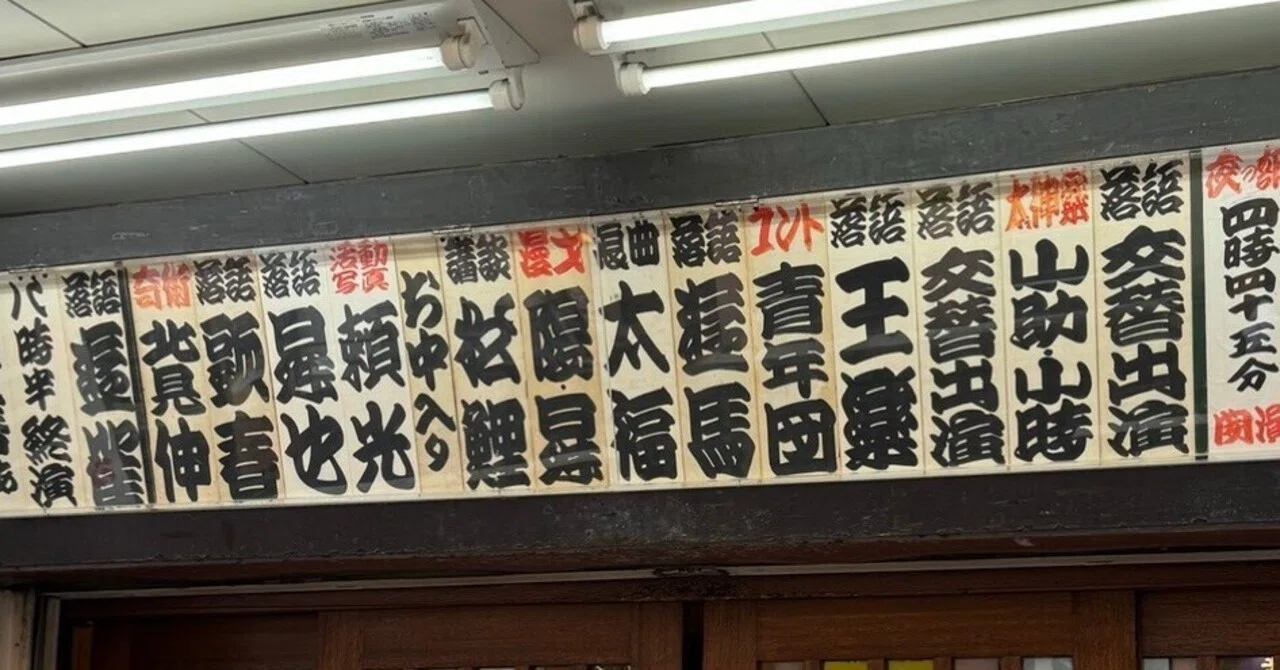 夜の部 四時四十五分 開演
落語 交替出演
太神楽 山助・小時
落語 交替出演
落語 王楽
コント 青年団
落語 遊馬
浪曲 太福
漫才 陽・昇
講談 松鯉
お中入り
活動写真 頼光
落語 昇也
落語 春
奇術 北見伸
落語 遊雀
八時半 終演